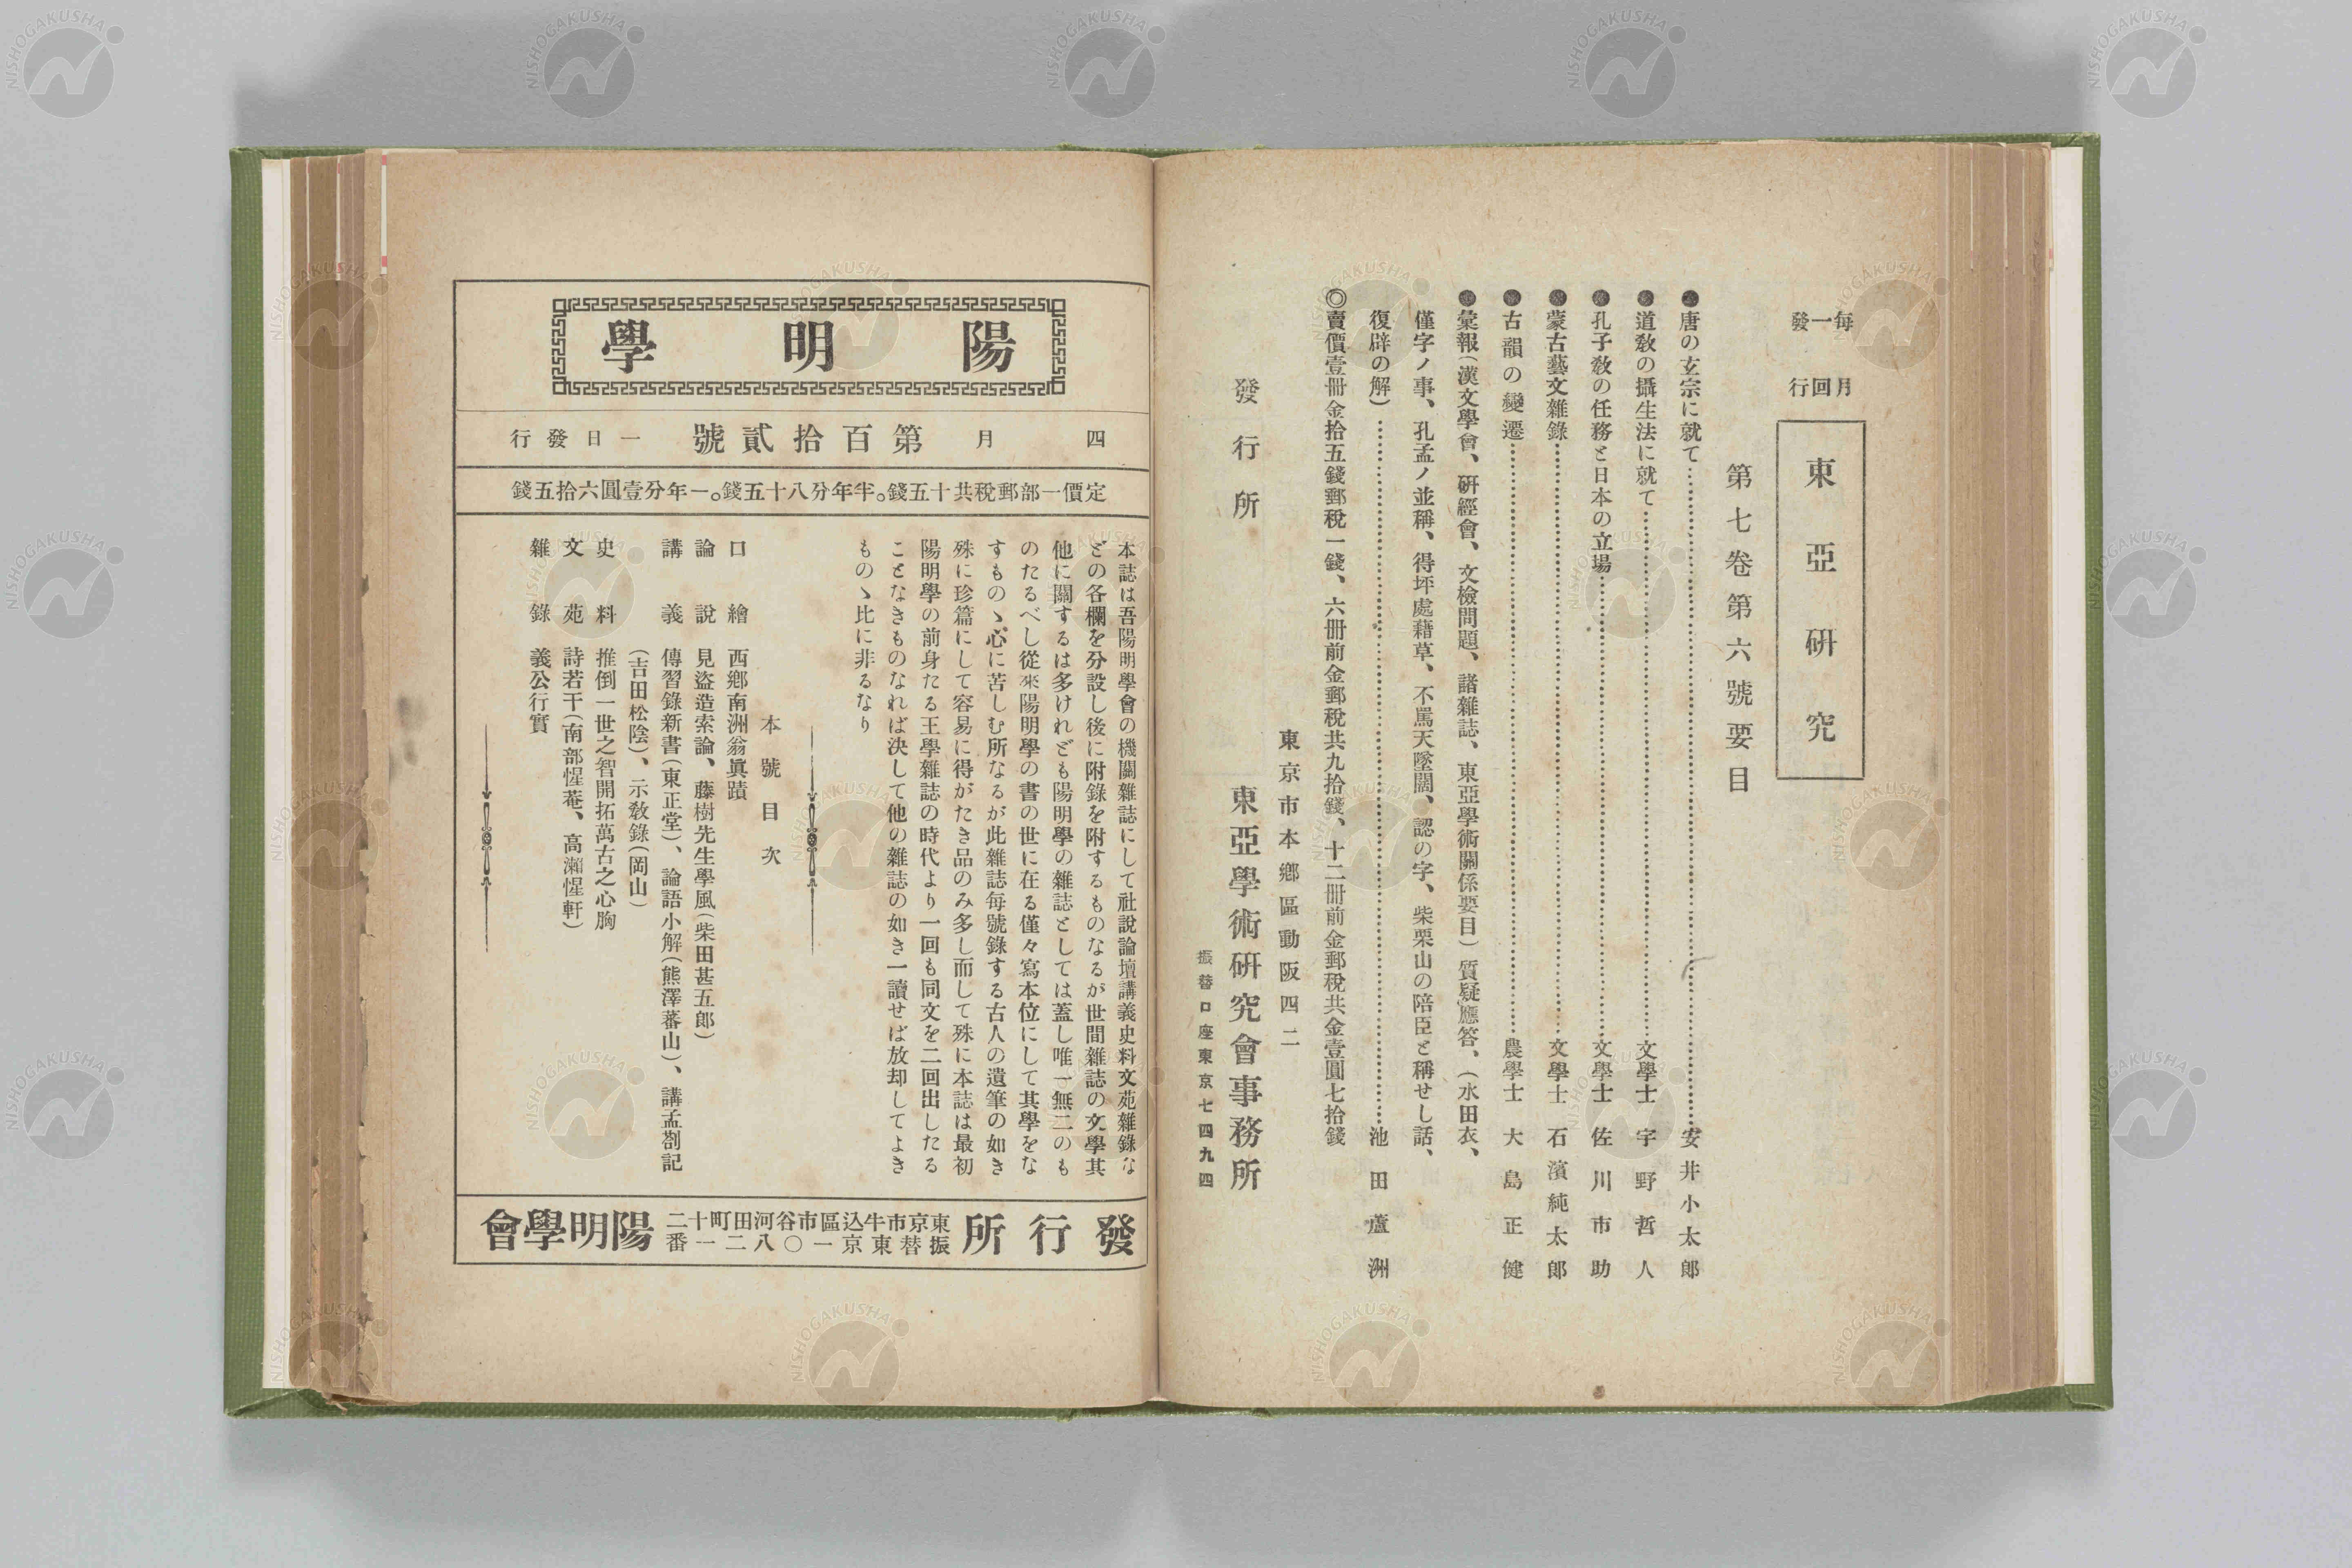 每月
一回
發行
東亞硏究
第七卷第六號要目
●唐の玄宗に就て……安井小太郞
●道敎の攝生法に就て……文學士 宇野哲人
●孔子敎の任務と日本の立場……文學士 佐川市助
●蒙古藝文雜錄……文學士 石濱純太郞
●古韻の變遷……農學士 大島正健
●彙報(漢文學會、硏經會、文檢問題、諸雜誌、東亞學術關係要目)質疑應答、(水田衣、
僅字ノ事、孔孟ノ並稱、得坪處藉草、不罵天墜闊、認の字、柴栗山の陪臣と稱せし話、
復辟の解)……池田蘆洲
◎賣價壹冊金拾五錢郵稅一錢、六冊前金郵稅共九拾錢、十二冊前金郵稅共金壹圓七拾錢
東京市本鄕區動阪四二
發行所 東亞學術硏究會事務所
振替口座東京七四九四
陽明學
四月 第百拾貳號 一日發行
定價一部郵稅共十五錢。半年分八十五錢。一年分壹圓六拾五錢
本誌は吾陽明學會の機關雜誌にして社說論壇講義史料文苑雜錄な
どの各欄を分設し後に附錄を附するものなるが世間雜誌の文學其
他に關するは多けれども陽明學の雜誌としては蓋し唯一無二のも
のたるべし從來陽明學の書の世に在る僅々寫本位にして其學をな
すものゝ心に苦しむ所なるが此雜誌每號錄する古人の遺筆の如き
殊に珍篇にして容易に得がたき品のみ多し而して殊に本誌は最初
陽明學の前身たる王學雜誌の時代より一回も同文を二回出したる
ことなきものなれば決して他の雜誌の如き一讀せば放却してよき
ものゝ比に非るなり
本號目次
口繪 西鄕南洲翁眞蹟
論說 見盜造索論、藤樹先生學風(柴田甚五郞)
講義 傳習錄新書(東正堂)、論語小解(熊澤蕃山)、講孟剳記
(吉田松陰)、示敎錄(岡山)
史料 推倒一世之智開拓萬古之心胸
文苑 詩若干(南部惺菴、高瀨惺軒)
雜錄 義公行實
發行所
東京市牛込區市谷河田町十二
振替東京一〇八二一番
陽明學會
NISHOGAKUSHA